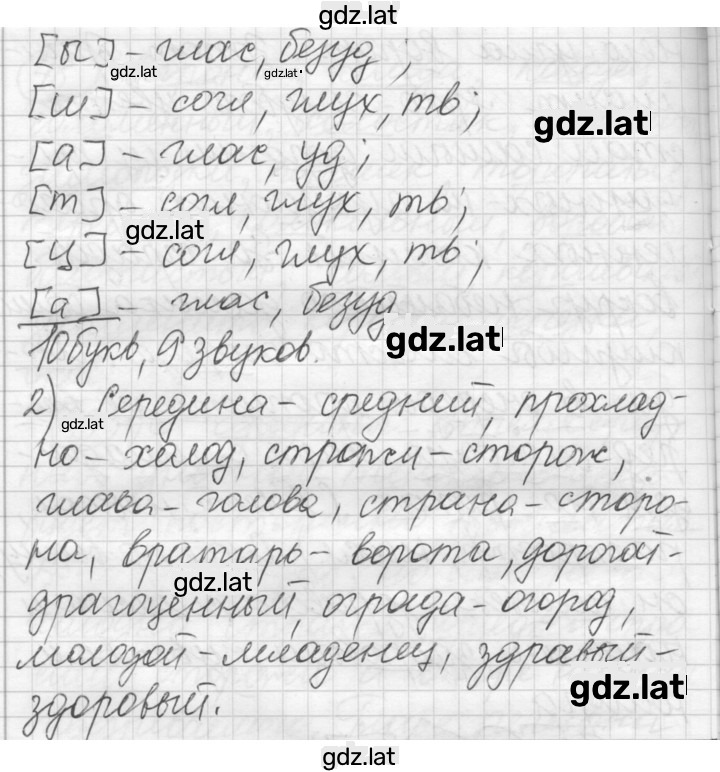 gdz.lat
[ы] – глас, безуд;
gdz.lat
gdz.lat
[ш] – согл, глух, тв;
gdz.lat
[а] – глас, уд;
[т] – согл, глух, тв;
gdz.lat
[ц] – согл, глух, тв;
[а] – глас, безуд
gdz.lat
10 букв, 9 звуков.
2) Середина – средний, прохлад-
gdz.lat
но – холод, стражи – сторож,
глава – голова, страна – сторо-
на, вратарь – ворота, дорогой –
gdz.lat
драгоценный, ограда – огород,
молодой – младенец, здравый –
gdz.lat
здоровый.
gdz.lat